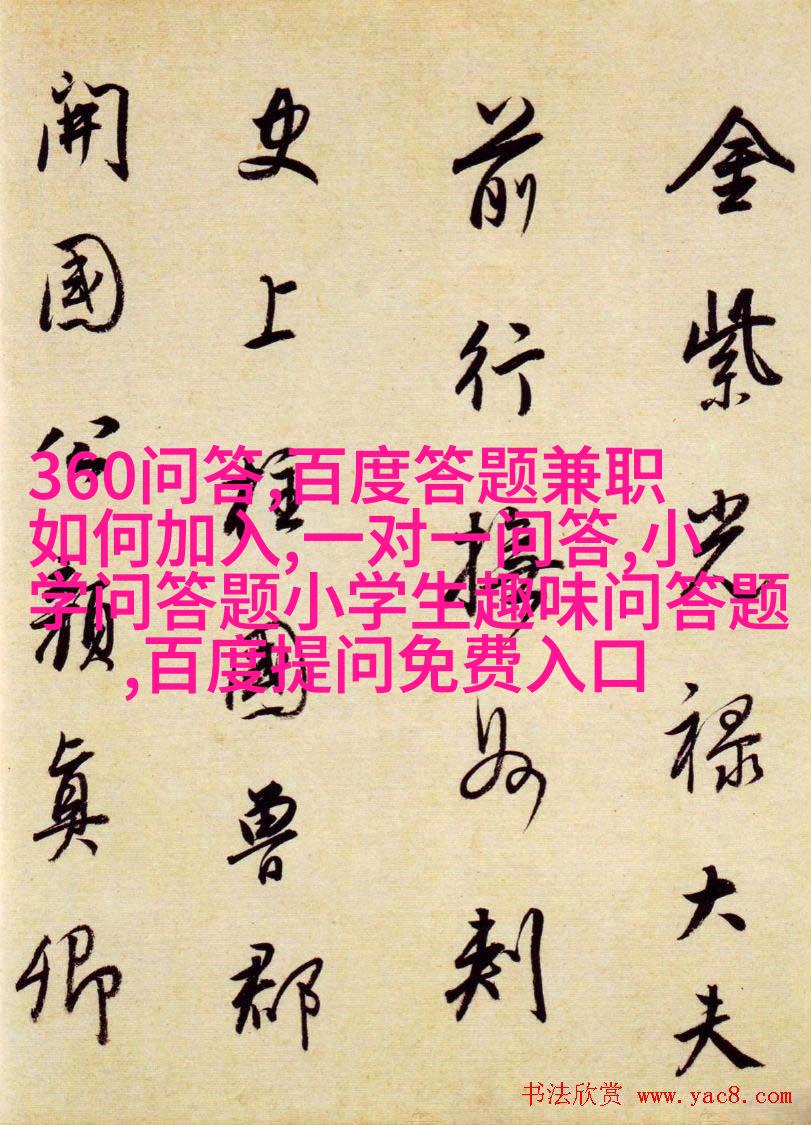 金紫光禄大夫
前行撫州刺
史上柱國魯郡
開國公顏眞卿
360问答,百度答题兼职
如何加入,一对一问答,小
学问答题小学生趣味问答题
,百度提问免费入口
书法欣赏 www.yac8.com